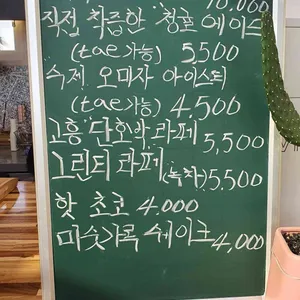 10,000
직접 착즙한 청포도 에이드
(tae가능) 5,500
수제 오미자 아이스티
(tae가능) 4,500
고흥 단호박 라떼 5,500
그린티 라떼(녹차) 5,500
핫 초코 4.000
미숫가루 쉐이크 4,000